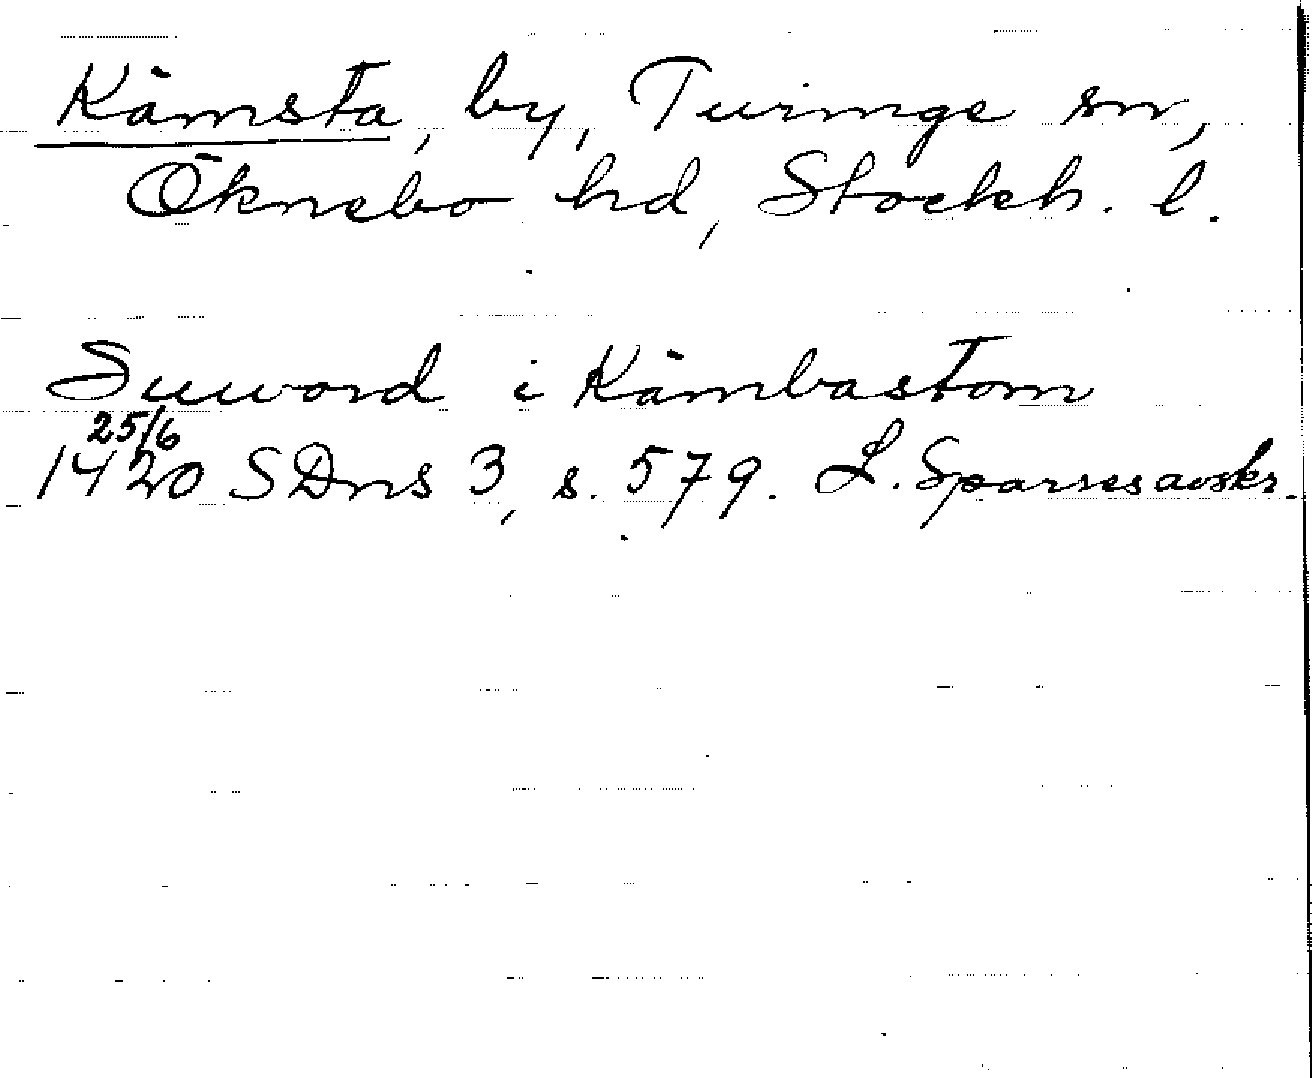 Kämsta, by, Turinge sn,
Öknebo hd, Stockh. l.
Suword i Kämbastom
25/6
1420 SDns 3, s. 579. L. Sparres avskr.